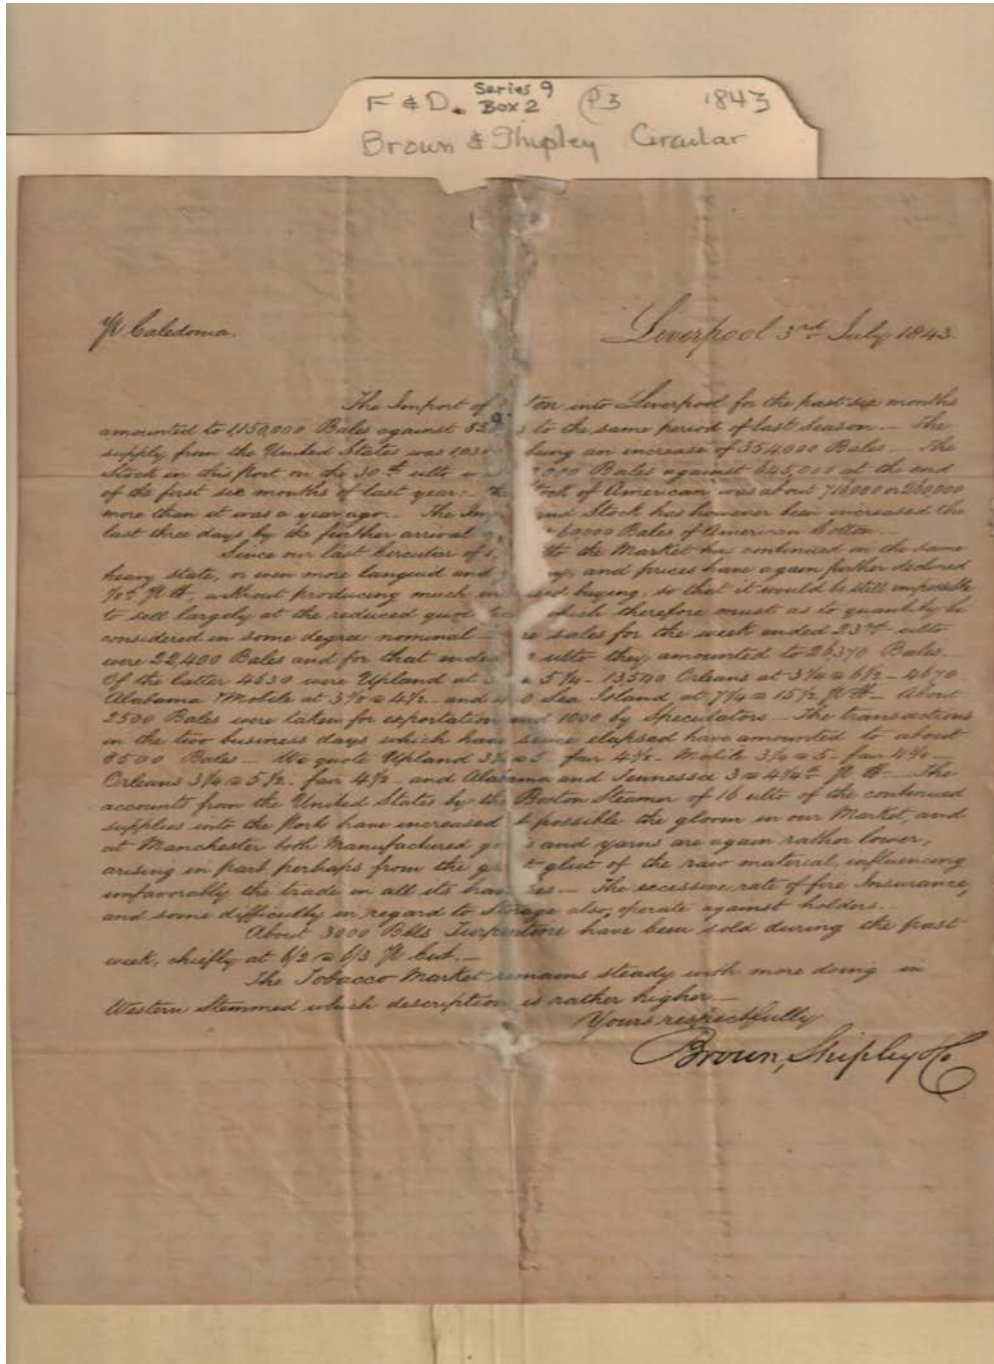 F & D. Series 9 Box 2 P3 1843
Brown & Shipley Circular
Pr Caledonia.
Liverpool 3rd July 1843.
The Import of ton into Liverpool for the past six months
amounted to 1,150,000 Bales against to the same period of last season. — The
supply from the United States was being an increase of 354,000 Bales. — The
Stock in this Port on the 30th ulto 000 Bales against 645,000 at the end
of the first six months of last year: the tock of American was about or 260,000
more than it was a year ago. — The Imp and Stock has however been increased the
last three days by the further arrival 60000 Bales of American Cotton. —
Since our last Circular of the Market has continued in the same
heavy state, or even more languid and and prices have again further declined
⅛d Pr lb, without producing much buying, so that it would be still impossible
to sell largely at the reduced quot which therefore must as to quantity be
considered in some degree nominal — sales for the week ended 23rd ulto
were 22,400 Bales and for that ended ulto they amounted to 26,370 Bales. —
Of the latter 4630 were Upland at 5¼ - 13,540 Orleans at 3¼ @ 6½ - 4670
Alabama & Mobile at @ 4½ - and Sea Island at 7¼ @ 15½ Pr lb. — About
2500 Bales were taken for exportation and 1000 by Speculators — The transactions
in the two business days which have since elapsed have amounted to about
8500 Bales — We quote Upland @ 5 - fair - Mobile @ 5 - fair —
Orleans 3¼ @ 5½ - fair 4½ - and Alabama and Tennessee 3 @ 4¼d Pr lb. — The
accounts from the United States by the Boston Steamer of 16 ulto of the continued
supplies into the Ports have increased if possible the gloom in our Market, and
at Manchester both Manufactured go and yarns are again rather lower,
arising in part perhaps from the gr t glut of the raw material, influencing
unfavorably the trade in all its es. — The excessive rate of fire Insurance,
and some difficulty in regard to Storage also, operate against holders. —
About 3000 Bbls Turpentine have been sold during the past
week, chiefly at 6/2 @ 6/3 Pr Cwt. —
The Tobacco Market remains steady with more doing in
Western Stemmed which description is rather higher. —
Yours respectfully
Brown, Shipley & Co